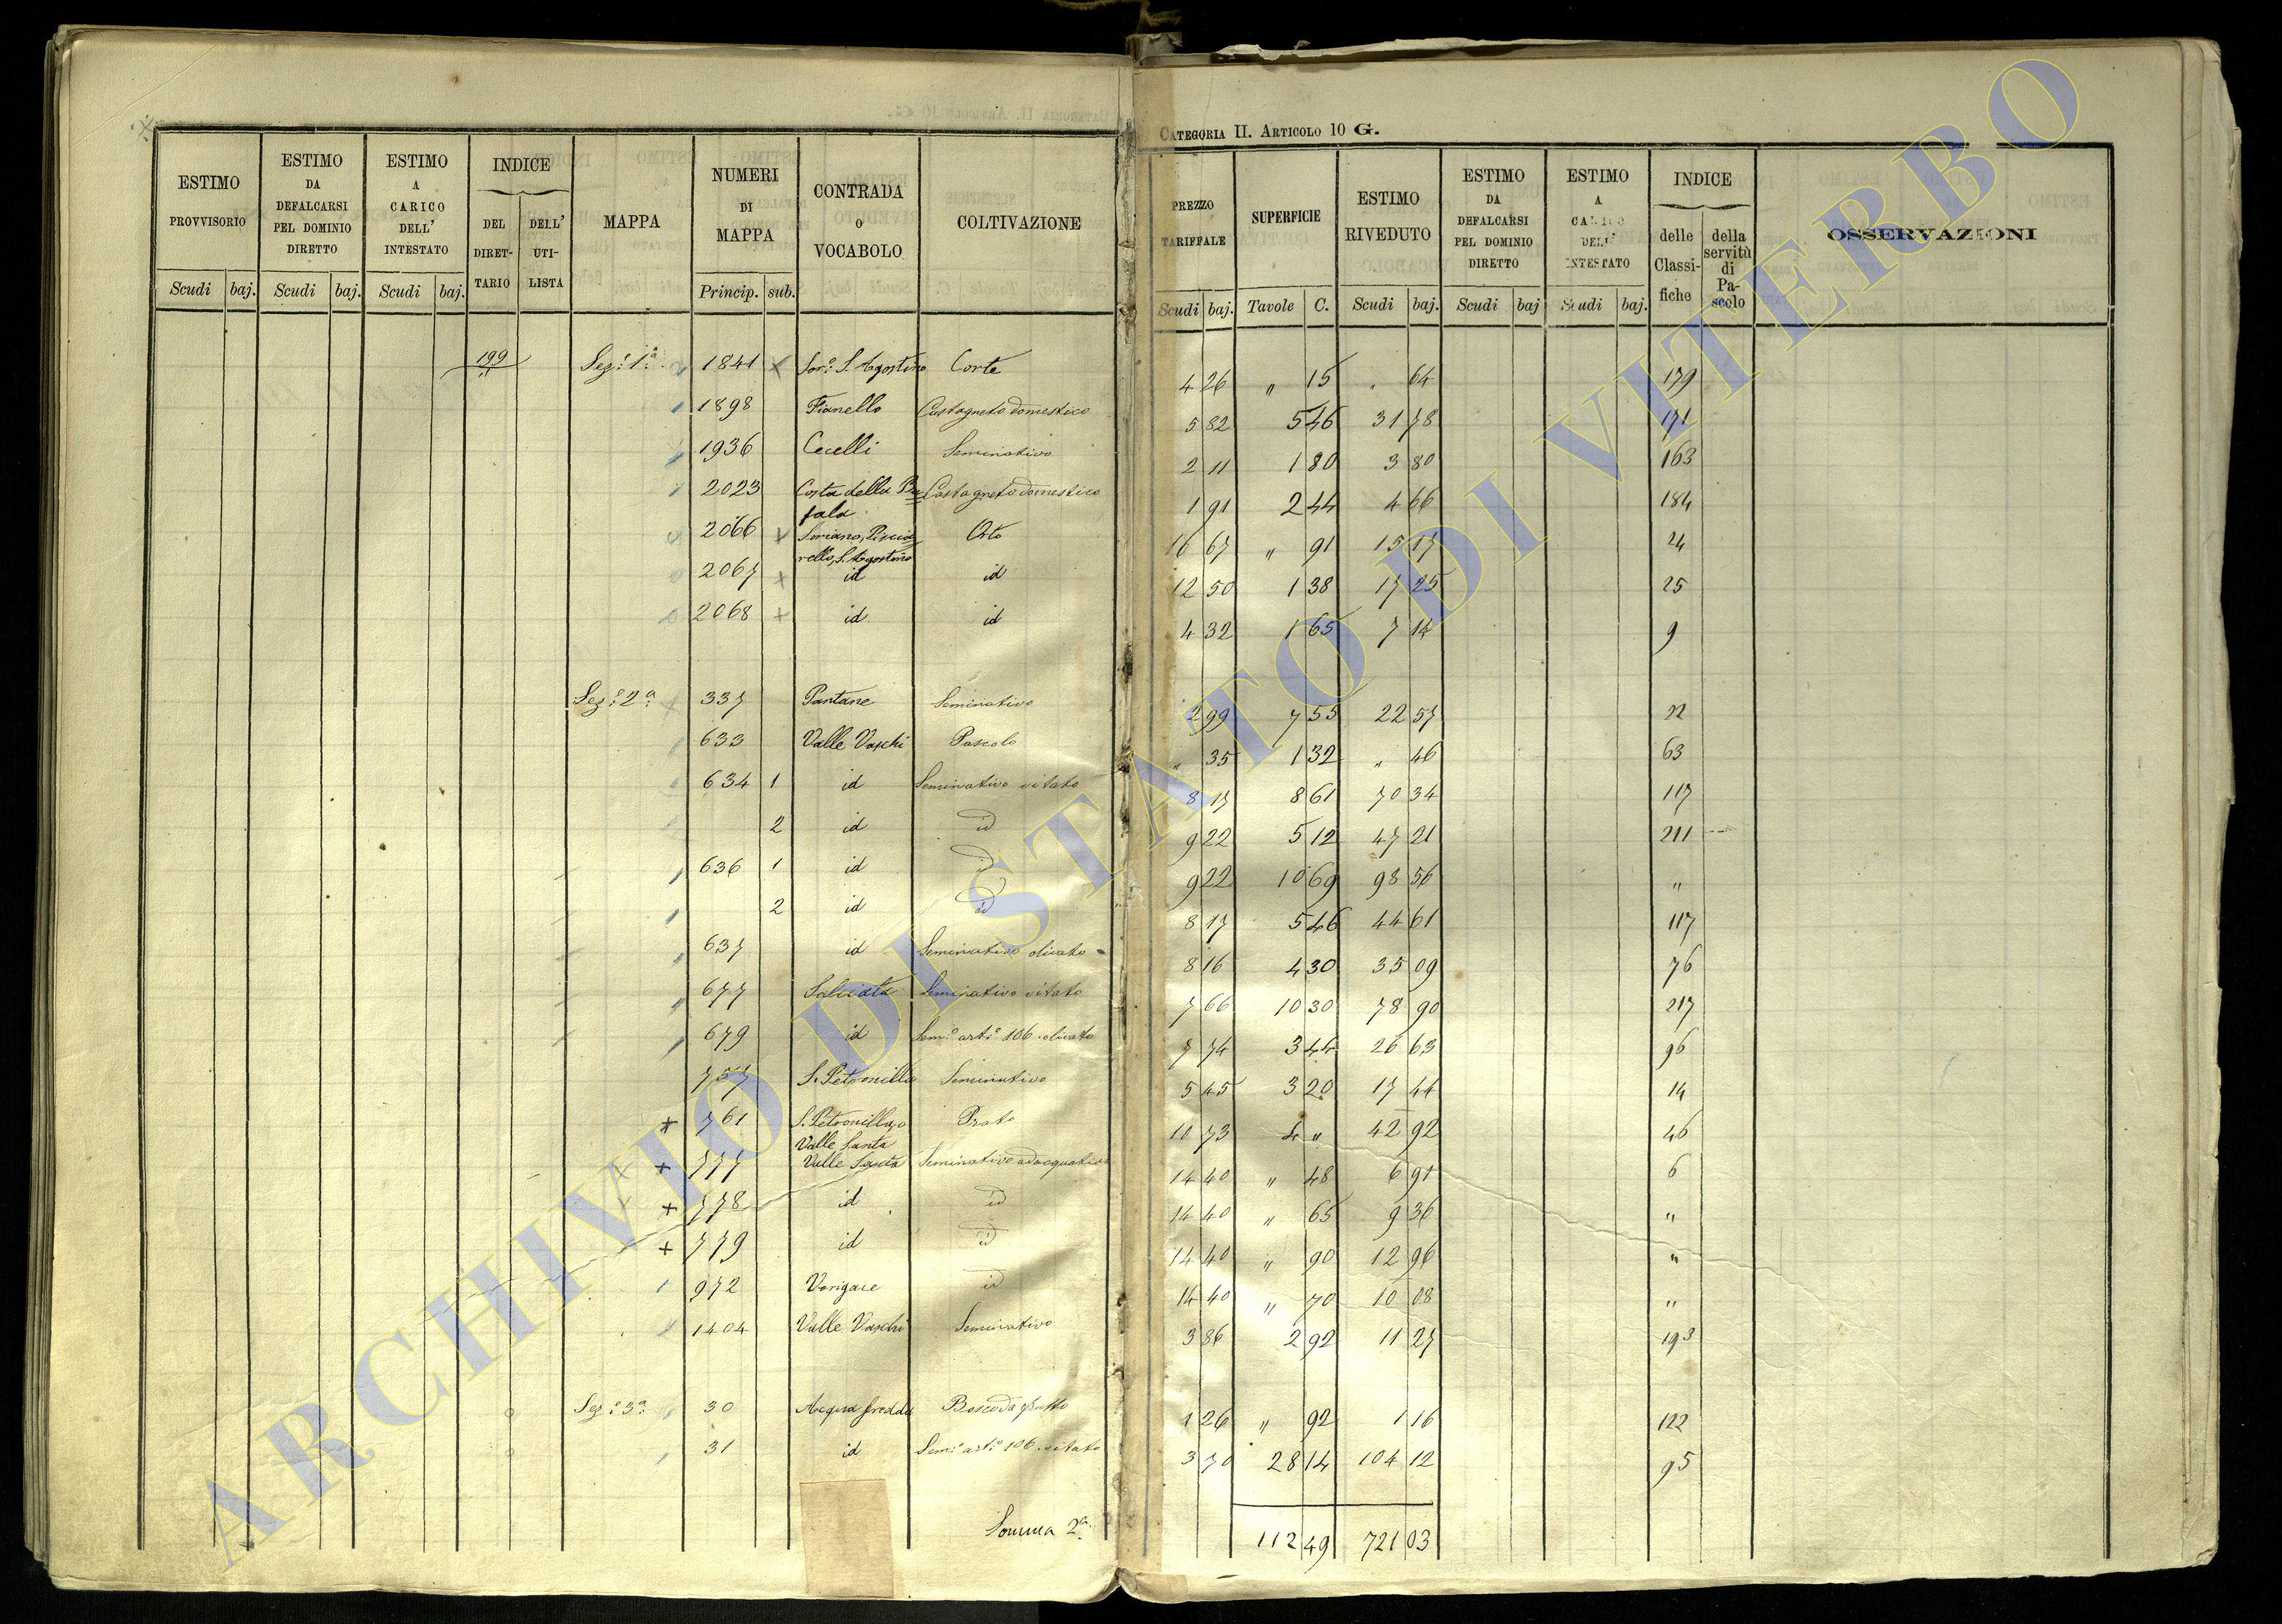 CATEGORIA II. ARTICOLO 10 G.
ESTIMO PROVVISORIO Scudi baj.
ESTIMO DA DEFALCARSI PEL DOMINIO DIRETTO Scudi baj.
ESTIMO A CARICO DELL' INTESTATO Scudi baj.
INDICE DEL DIRETTARIO DELL' UTILISTA
MAPPA
NUMERI DI MAPPA Princip. sub.
CONTRADA o VOCABOLO
COLTIVAZIONE
PREZZO TARIFFALE Scudi baj.
SUPERFICIE Tavole C.
ESTIMO RIVEDUTO Scudi baj.
ESTIMO DA DEFALCARSI PEL DOMINIO DIRETTO Scudi baj
ESTIMO A CARICO DELL' INTESTATO Scudi baj.
INDICE delle Classifiche della servitù di Pascolo
OSSERVAZIONI
199 Sez: 1a 1841 x Sor: S. Agostino Corte 4 26 " 15 " 64 179
1898 Fianello Castagneto domestico 5 82 5 46 31 78 171
1936 Cecelli Seminativo 2 11 1 80 3 80 163
2023 Costa della Bufala Castagneto domestico 1 91 2 44 4 66 184
2066 x Soriano, Pisciarello, S. Agostino Orto 16 67 " 91 15 17 24
2067 x id id 12 50 1 38 17 25 25
2068 x id id 4 32 1 65 7 14 9
Sez: 2a 337 Pantane Seminativo 2 99 7 55 22 57 22
633 Valle Vaschi Pascolo " 35 1 32 " 46 63
634 1 id Seminativo vitato 8 17 8 61 70 34 117
2 id id 9 22 5 12 47 21 211
636 1 id id 9 22 10 69 98 56 "
2 id id 8 17 5 46 44 61 117
637 id Seminativo olivato 8 16 4 30 35 09 76
677 Salciata Seminativo vitato 7 66 10 30 78 90 217
679 id Sem: arti: 106 olivato 7 74 3 44 26 63 96
757 S. Petronilla Seminativo 5 45 3 20 17 44 14
x 761 S. Petronilla, o Valle Santa Prato 10 73 4 " 42 92 46
x x 777 Valle Santa Seminativo adacquativo 14 40 " 48 6 91 6
x 778 id id 14 40 " 65 9 36 "
x 779 id id 14 40 " 90 12 96 "
972 Vorigace id 14 40 " 70 10 08 "
1404 Valle Vaschi Seminativo 3 86 2 92 11 27 193
Sez: 3a 30 Acqua fredda Bosco da frutto 1 26 " 92 1 16 122
31 id Sem: arti: 106 vitato 3 70 28 14 104 12 95
Somma 2a 112 49 721 03
ARCHIVIO DI STATO DI VITERBO